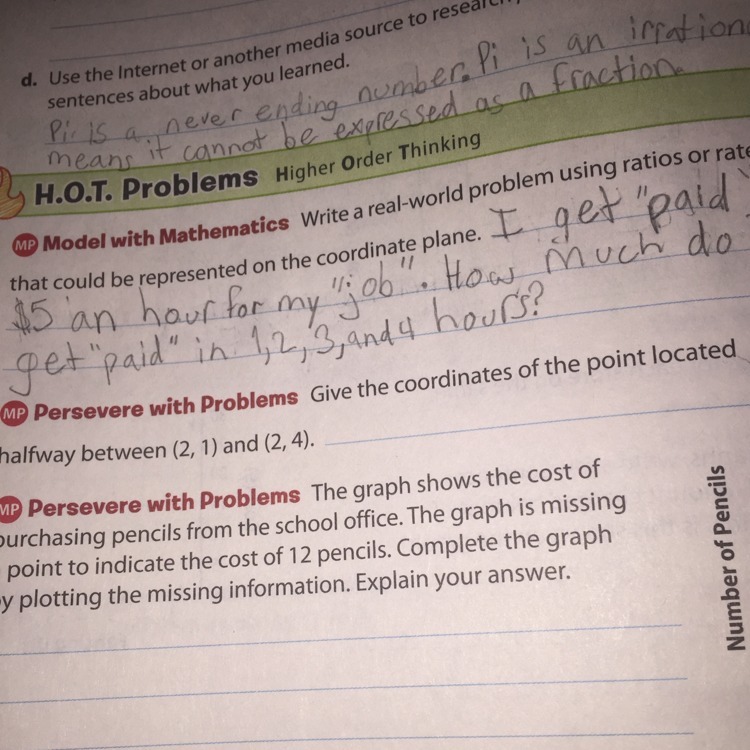 d. Use the Internet or another media source to research
sentences about what you learned.
Pi is a never ending number. Pi is an
means it cannot be expressed as a fraction.
H.O.T. Problems Higher Order Thinking
MP Model with Mathematics Write a real-world problem using ratios or rate
that could be represented on the coordinate plane. I get "paid"
$5 an hour for my "job". How much do
get "paid" in 1,2,3,and 4 hours?
MP Persevere with Problems Give the coordinates of the point located
halfway between (2, 1) and (2, 4).
MP Persevere with Problems The graph shows the cost of
purchasing pencils from the school office. The graph is missing
point to indicate the cost of 12 pencils. Complete the graph
y plotting the missing information. Explain your answer.
Number of Pencils